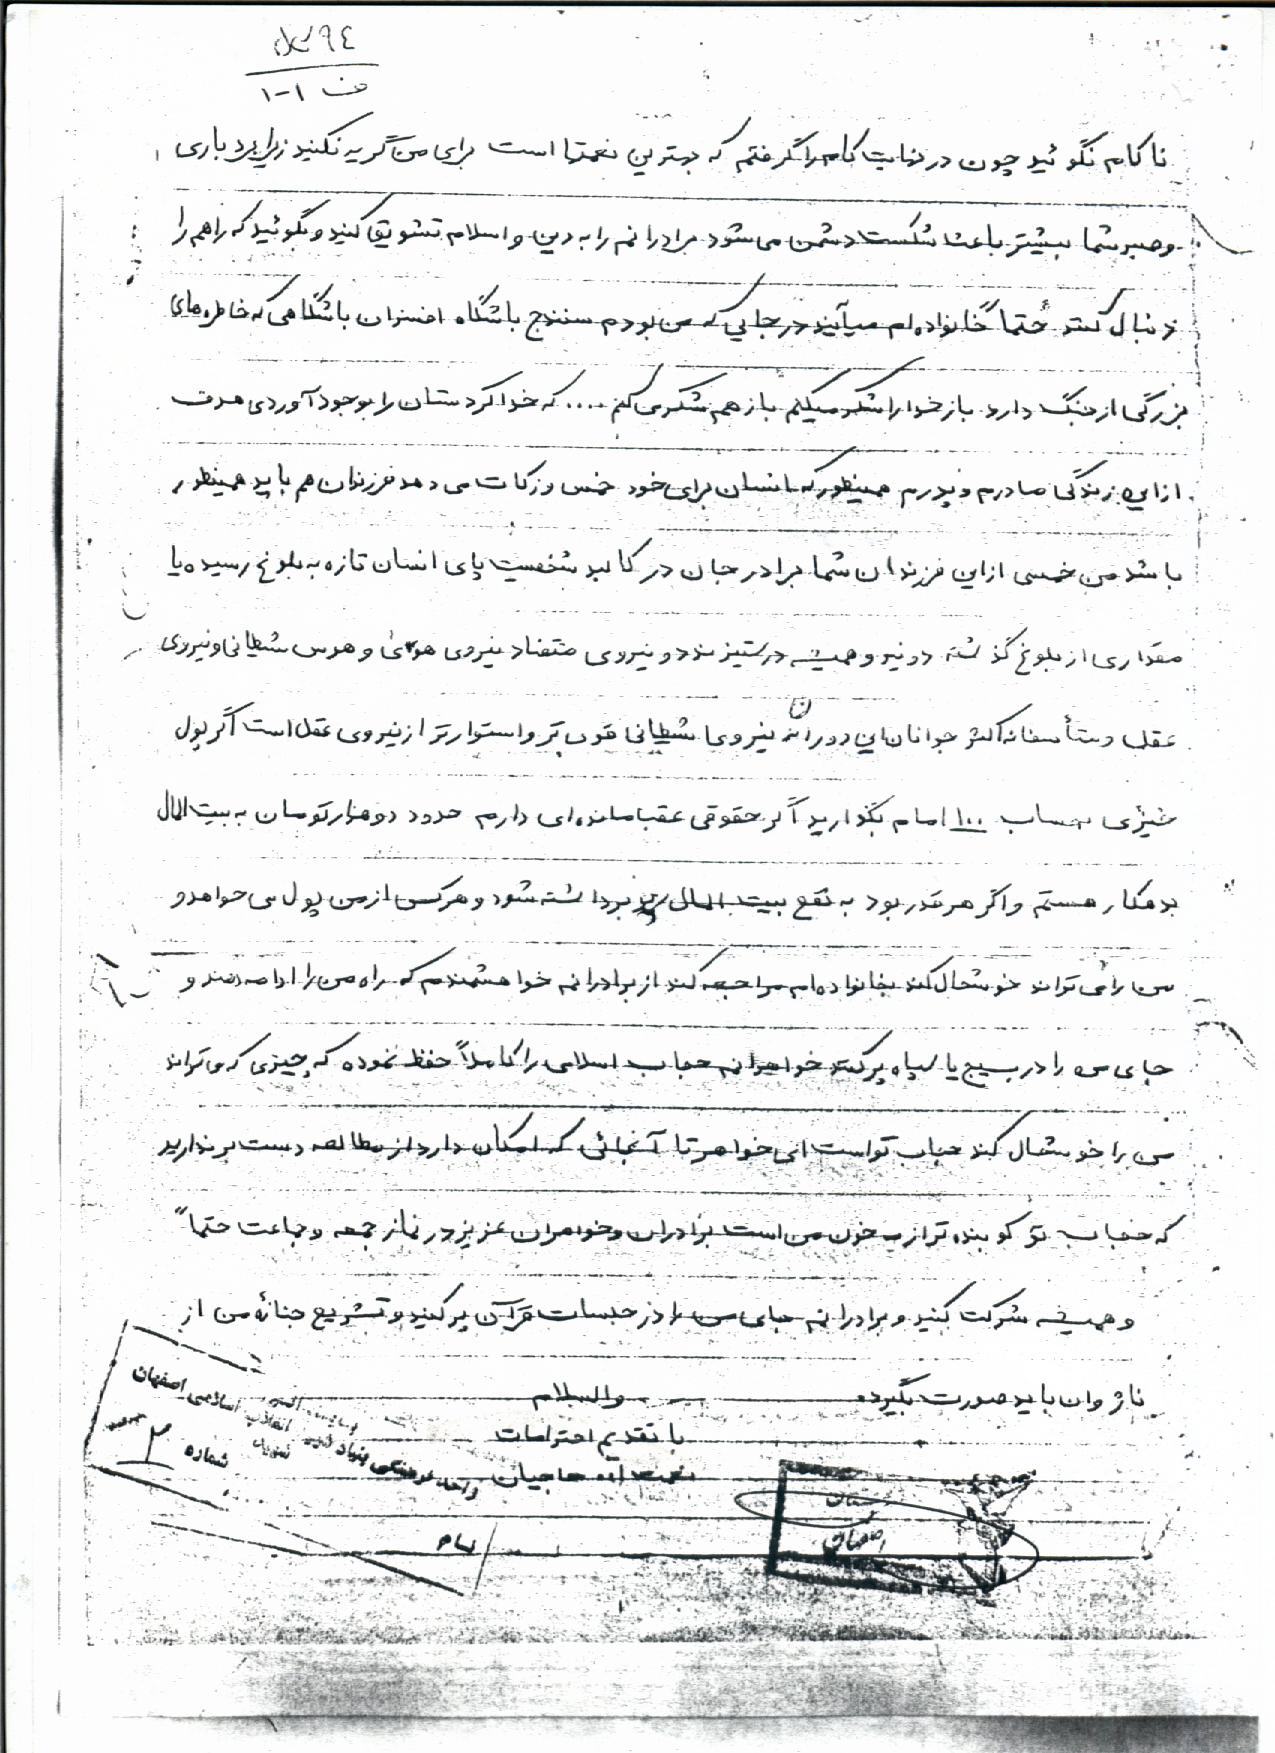 ف ۱-۱
ناکام نگوئید چون در نهایت کام را گرفتم که بهترین نعمتها است برای من گریه نکنید زیرا بردباری
و صبر شما بیشتر باعث شکست دشمن می شود برادرانم را به دین و اسلام تشویق کنید و بگوئید که راهم را
دنبال کنند حتماً خانواده ام میآیند در جایی که من بودم سنندج باشگاه افسران باشگاهی که خاطره های
بزرگی از جنگ دارد باز خدا را شکر میکنم باز هم شکر می کنم .... که خدا کردستان را بوجود آوردی هدف
از این زندگی مادرم و پدرم همینطور که انسان برای خود خمس و زکات می دهد فرزندان هم باید همینطور
باشد من خمسی از این فرزندان شما برادر جان در کالبد شخصیت پای انسان تازه به بلوغ رسیده یا
مقداری از بلوغ گذشته دو نیرو همیشه در ستیزند دو نیروی متضاد نیروی هوی و هوس شیطانی و نیروی
عقل و متأسفانه اکثر جوانان این دوران نیروی شیطانی قوی تر و استوارتر از نیروی عقل است اگر پول
چیزی بحساب ۱۰۰ امام بگذارید اگر حقوقی عقبا مانده ای دارم حدود دو هزار تومان به بیت المال
بدهکار هستم و اگر هر قدر بود به نفع بیت المال برداشته شود و هر کس از من پول می خواهد و
من را می تواند خوشحال کند بخانواده ام مراجعه کند از برادرانم خواهشمندم که راه من را ادامه دهند و
جای من را در بسیج یا سپاه پر کنند خواهرانم حجاب اسلامی را کاملاً حفظ نموده که چیزی که می تواند
من را خوشحال کند حجاب تو است ای خواهر تا آنجائی که امکان دارد از مطالعه دست برندارید
که حجاب تو کوبنده تر از خون من است برادران و خواهران عزیز در نماز جمعه و جماعت حتماً
و همیشه شرکت کنید و برادرانم جای من را در جلسات قرآن پر کنید و تشریع جنازه من از
ناژوان باید صورت بگیرد.
والسلام
با تقدیم احترامات
نعمت اله حاجیان
انقلاب اسلامی اصفهان
واحد فرهنگی بنیاد
شماره ۲
اصفهان